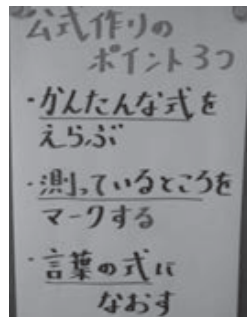 公式作りの
ポイント3つ
・かんたんな式を
えらぶ
・測っているところを
マークする
・言葉の式に
なおす